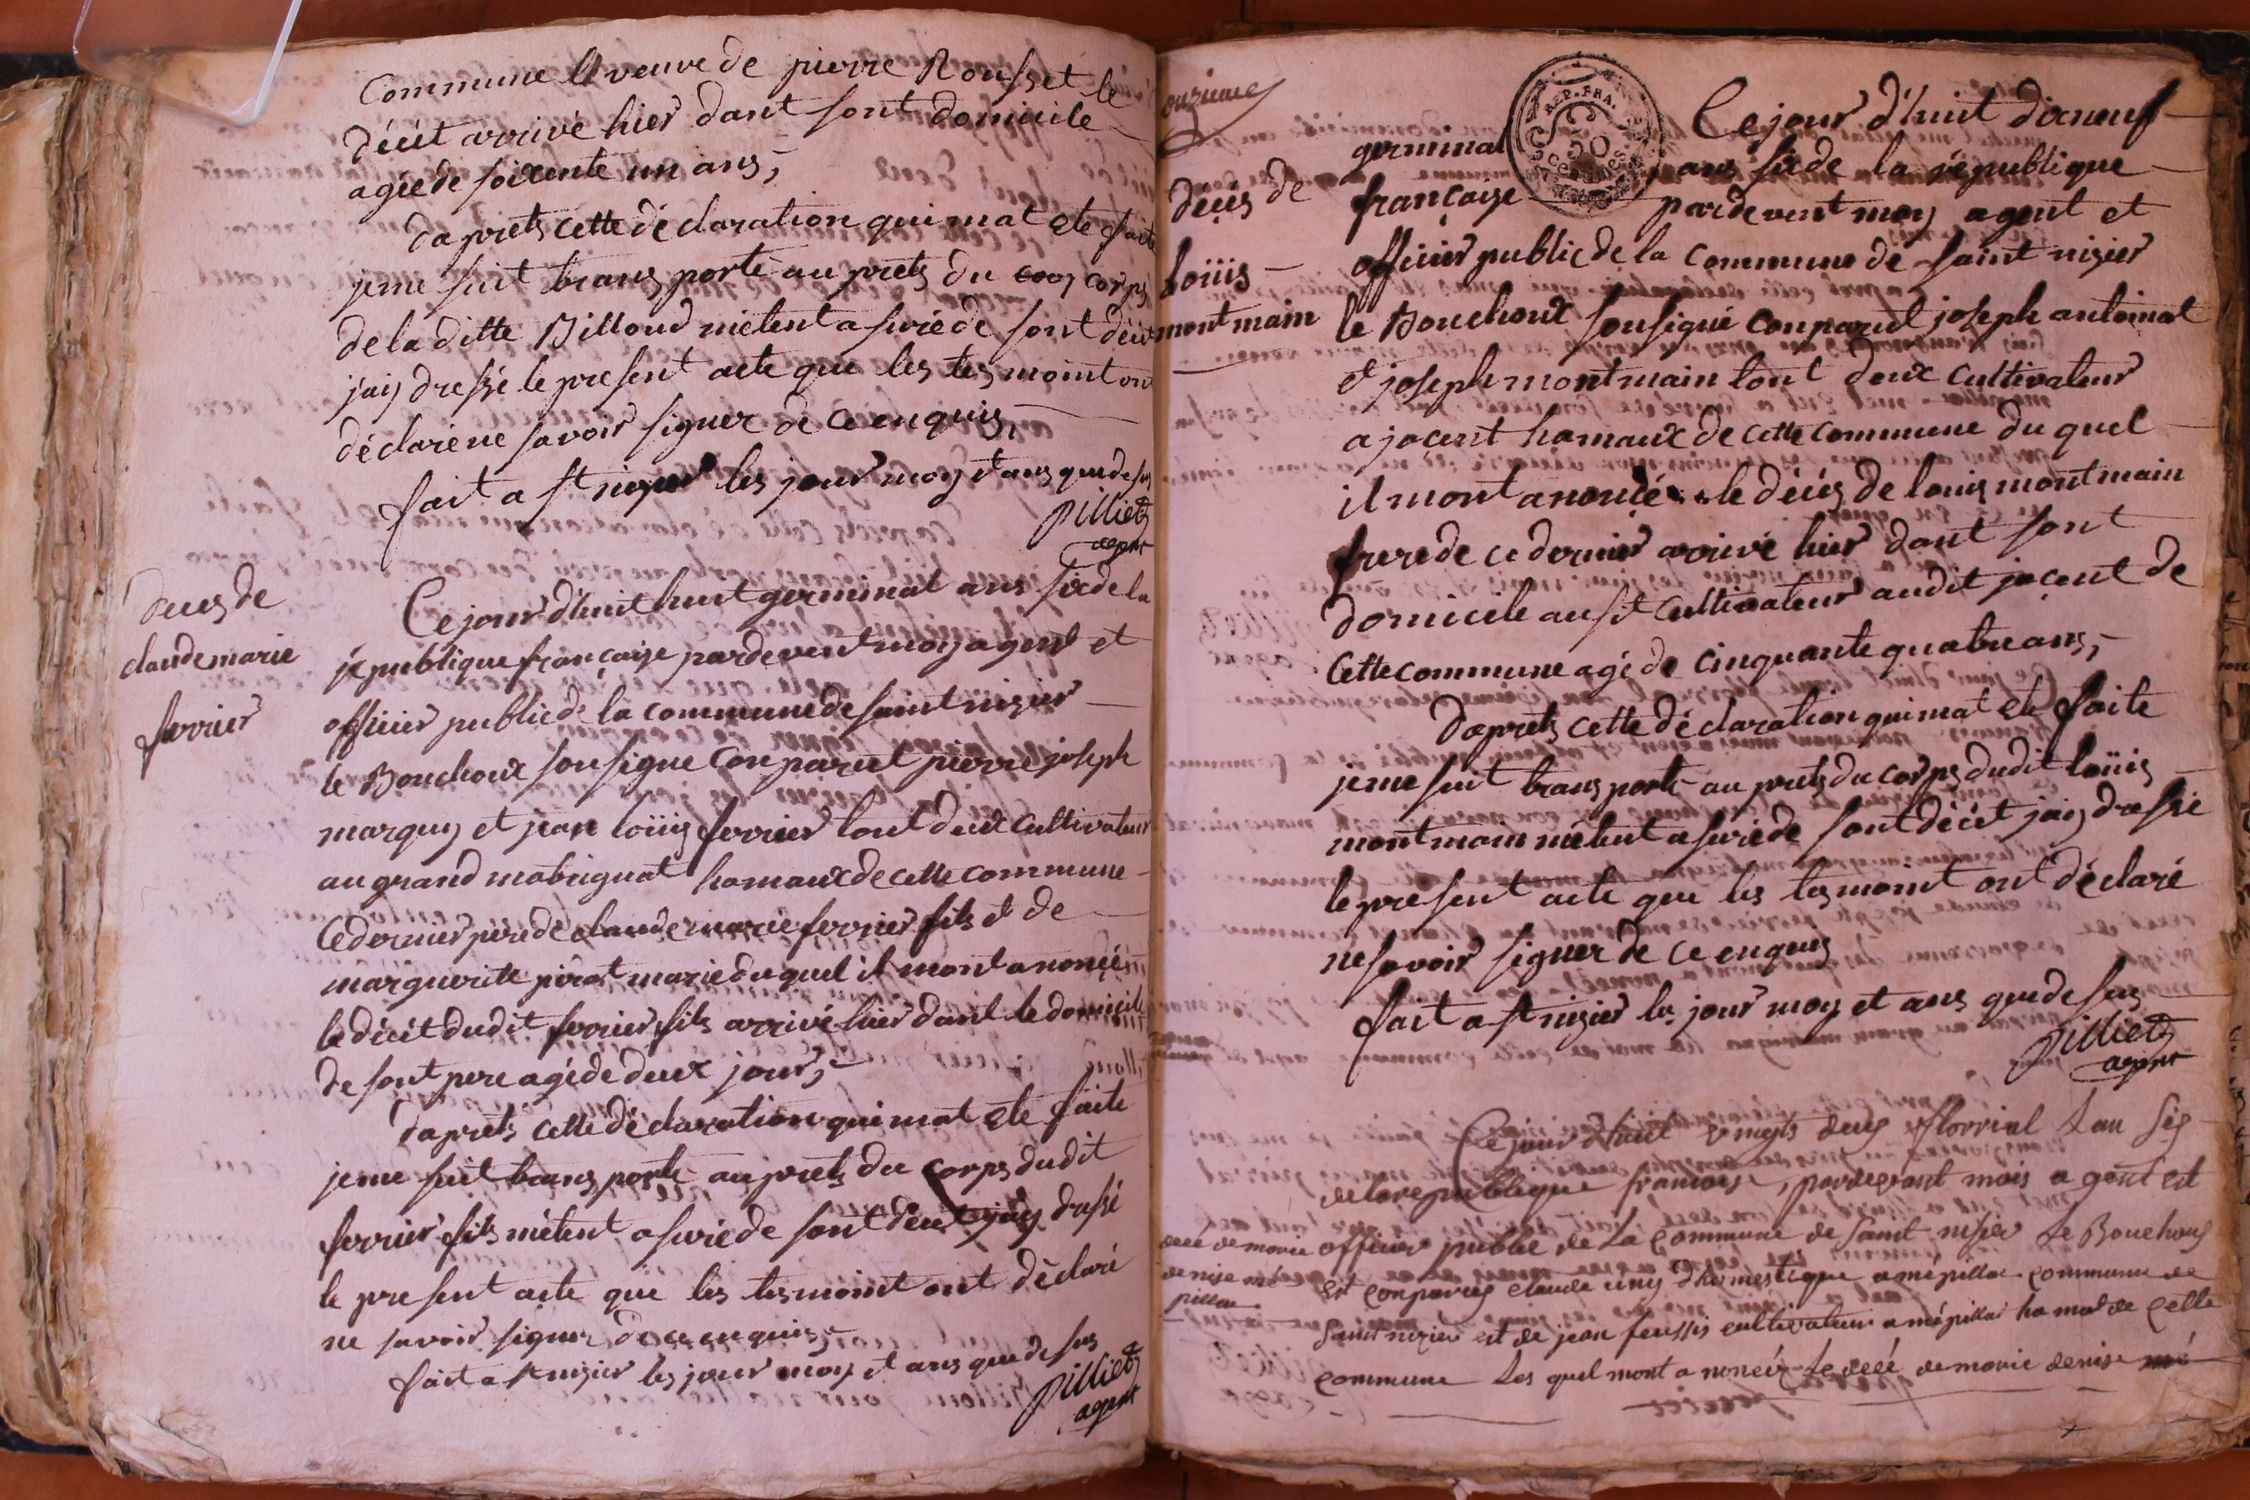 Commune et veuve de pierre Rousset le
décét arrivé hier dant sont domicile
agée de soixente un ans,
daprets cette déclaration qui mat ete faite
je me suit transporté au prets du corps
de la ditte Billoud m'etent asurée de sont décét
jaij dressé le present acte que les tesmoint ont
déclaré ne savoir signer de ce enquis,
fait a st nizier les jour moy et ans que desus
pilliet
agent
deces de
claude marie
ferrier
Ce jour d'huit huit germinal ans six de la
république françaize pardevent moy agent et
officier public de la commune de saint nizier
le Bouchoux sousigné conparut pierre joseph
marquy et jean loüis ferrier tout deux cultivateur
au grand mabrignat hamaux de cette commune
Ce dernier pere de claude marie ferrier fils et de
marguerite pirat marié du quel il mont anoncé
le décét dudit ferrier fils arrivé hier dant le domicile
de sont pere agé de deux jour,
daprets cette déclaration qui mat ete faite
je me suit transporté au prets du corps dudit
ferrier fils m'etent asuré de sont décét jaij dressé
le present acte que les tesmoint ont déclaré
ne savoir signer de ce enquis,
fait a st nizier les jour moy et ans que desus
pilliet
agent
onzieme
REP. FRA.
50
CENTIMES
décés de
loüis
montmain
Ce jour d'huit dixneuf
germinal ans six de la république
françaize pardevent moy agent et
officier public de la commune de saint nizier
le Bouchoux sousigné conparut joseph antoinat
et joseph montmain tout deux cultivateur
a jacent hamaux de cette commune du quel
il mont anoncé le décés de louis montmain
frere de ce dernier arrivé hier dant sont
domicile ausit cultivateur audit jacent de
Cette commune agé de cinquante quatre ans,
daprets cette déclaration qui mat ete faite
je me suit transporté au prets du corps dudit loüis
montmain m'etent asuré de sont décét jaij dressé
le present acte que les tesmoint ont déclaré
ne savoir signer de ce enquis
fait a st nizier les jour moy et ans que desus
pilliet
agent
decé de marie
denise mé
pillat
Ce jour dhuit vingts deux florrial Lan six
de la republique francoise, pardevant mois agent et
officier public de La commune de saint nisier Le Bouchoux
est conparus claude dhomestique a mépillat commune de
saint nizier et de jean feussis cultivateur a mépillat hamat de cette
commune Les quel mont anoncé Le decé de marie denise mé